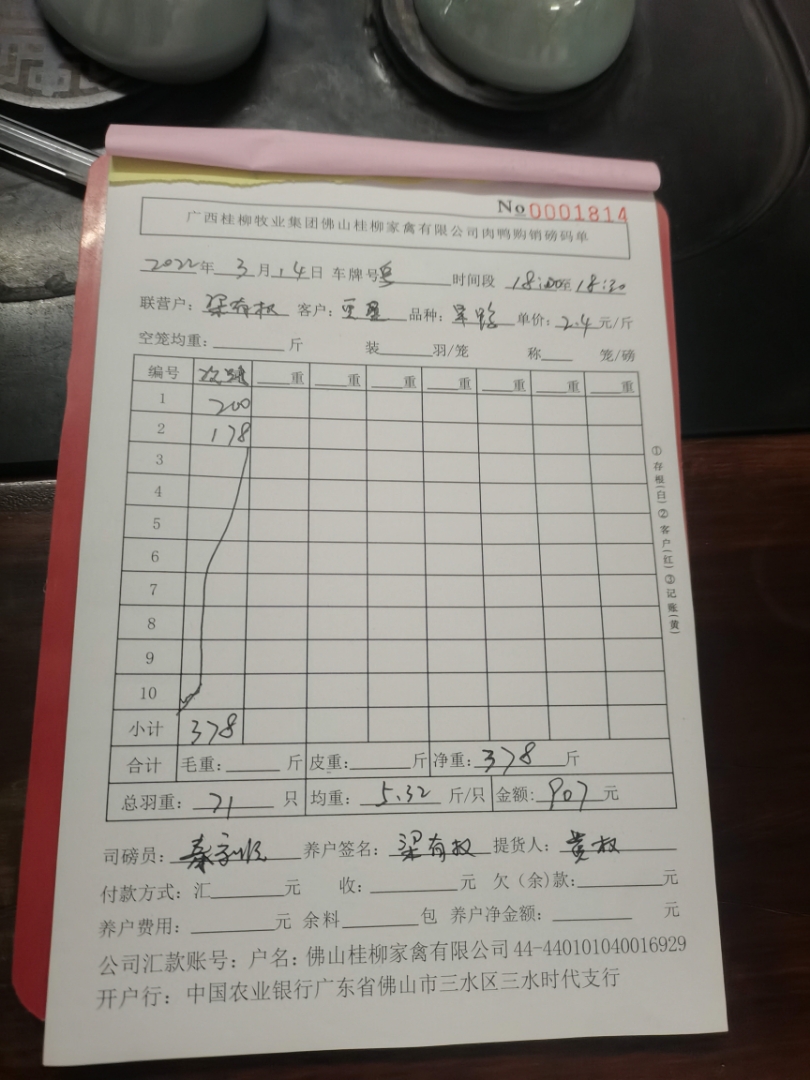 No 0001814
广西桂柳牧业集团佛山桂柳家禽有限公司肉鸭购销磅码单
2022年 3月 14日 车牌号 时间段 18:00至 18:30
联营户: 梁有权 客户: 品种: 单价: 2.4 元/斤
空笼均重: 斤 装 羽/笼 称 笼/磅
编号 重 重 重 重 重 重
1 200
2 178
3
4
5
6
7
8
9
10
小计 378
合计 毛重: 斤 皮重: 斤 净重: 378 斤
总羽重: 71 只 均重: 5.32 斤/只 金额: 907 元
司磅员: 养户签名: 梁有权 提货人: 黄权
付款方式: 汇 元 收: 元 欠(余)款: 元
养户费用: 元 余料 包 养户净金额: 元
公司汇款账号: 户名: 佛山桂柳家禽有限公司 44-440101040016929
开户行: 中国农业银行广东省佛山市三水区三水时代支行
①存根(白)②客户(红)③记账(黄)